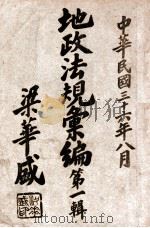 中華民國三十六年八月
地政法規彙編第一輯
梁華盛